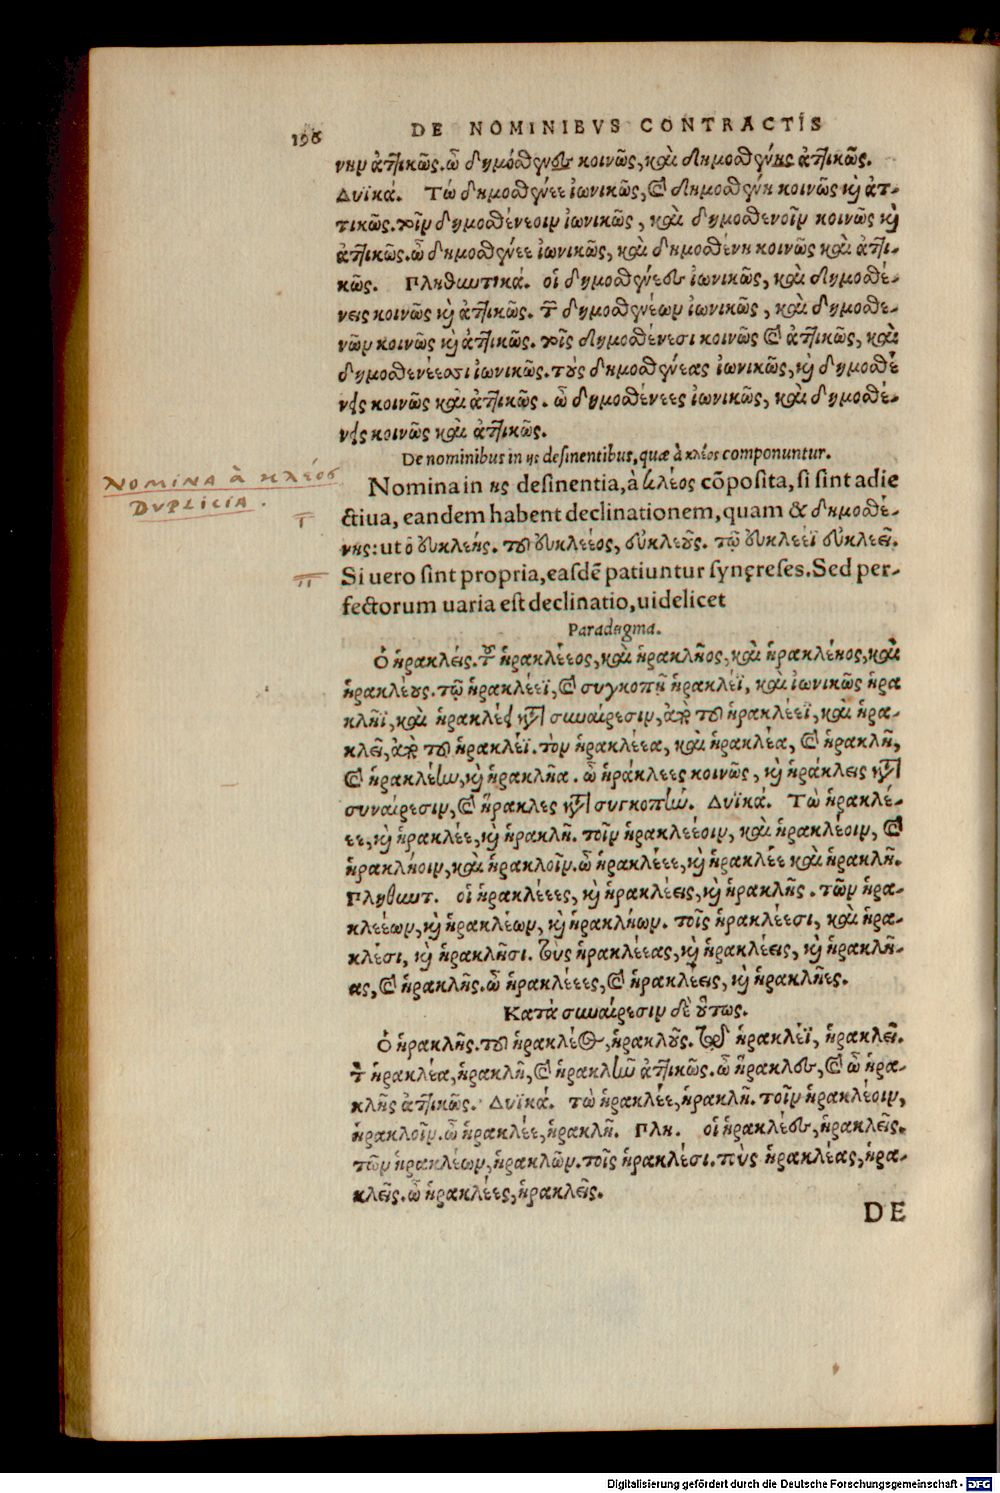 198
DE NOMINIBVS CONTRACTIS
νην ἀττικῶς. ὦ δημόσθενες κοινῶς, καὶ δημοσθένης ἀττικῶς.
Δυϊκά. Τὼ δημοσθένεε ἰωνικῶς, καὶ δημοσθένη κοινῶς καὶ ἀτ-
τικῶς. τοῖν δημοσθένεοιν ἰωνικῶς, καὶ δημοσθενοῖν κοινῶς καὶ
ἀττικῶς. ὦ δημοσθένεε ἰωνικῶς, καὶ δημοσθένη κοινῶς καὶ ἀττι-
κῶς. Πληθωτικά. οἱ δημοσθένεες ἰωνικῶς, καὶ δημοσθέ-
νεις κοινῶς καὶ ἀττικῶς. τῶν δημοσθενέων ἰωνικῶς, καὶ δημοσθε-
νῶν κοινῶς καὶ ἀττικῶς. τοῖς δημοσθένεσι κοινῶς καὶ ἀττικῶς, καὶ
δημοσθενέεσσι ἰωνικῶς. τοὺς δημοσθένεας ἰωνικῶς, καὶ δημοσθέ
νεις κοινῶς καὶ ἀττικῶς. ὦ δημοσθένεες ἰωνικῶς, καὶ δημοσθέ-
νεις κοινῶς καὶ ἀττικῶς.
De nominibus in ης desinentibus, quæ à κλέος componuntur.
NOMINA à κλέος
DVPLICIA.
Nomina in ης desinentia, à κλέος cōposita, si sint adie
ctiua, eandem habent declinationem, quam & δημοσθέ-
νης: ut ὁ εὐκλεής. τοῦ εὐκλεέος, εὐκλεοῦς. τῷ εὐκλεέϊ εὐκλεεῖ.
Si uero sint propria, easdē patiuntur synęreses. Sed per-
fectorum uaria est declinatio, uidelicet
Paradegma.
Ὁ ἡρακλέης. τοῦ ἡρακλέεος, καὶ ἡρακλῆος, καὶ ἡρακλέηος, καὶ
ἡρακλέους. τῷ ἡρακλέεϊ, καὶ συγκοπῇ ἡρακλέϊ, καὶ ἰωνικῶς ἡρα
κλῆϊ, καὶ ἡρακλέει κατὰ συναίρεσιν, ἀπὸ τοῦ ἡρακλέεϊ, καὶ ἡρα-
κλεῖ, ἀπὸ τοῦ ἡρακλέϊ. τὸν ἡρακλέεα, καὶ ἡρακλέα, καὶ ἡρακλῆ,
καὶ ἡρακλέην, καὶ ἡρακλῆα. ὦ ἡράκλεες κοινῶς, καὶ ἡράκλεις κατὰ
συναίρεσιν, καὶ ἥρακλες κατὰ συγκοπήν. Δυϊκά. Τὼ ἡρακλέ-
εε, καὶ ἡρακλέε, καὶ ἡρακλῆ. τοῖν ἡρακλεέοιν, καὶ ἡρακλέοιν, καὶ
ἡρακλήοιν, καὶ ἡρακλοῖν. ὦ ἡρακλέεε, καὶ ἡρακλέε καὶ ἡρακλῆ.
Πληθωτ. οἱ ἡρακλέεες, καὶ ἡρακλέεις, καὶ ἡρακλῆς. τῶν ἡρα-
κλεέων, καὶ ἡρακλέων, καὶ ἡρακλήων. τοῖς ἡρακλέεσι, καὶ ἡρα-
κλέσι, καὶ ἡρακλῆσι. τοὺς ἡρακλέεας, καὶ ἡρακλέεις, καὶ ἡρακλῆ-
ας, καὶ ἡρακλῆς. ὦ ἡρακλέεες, καὶ ἡρακλέεις, καὶ ἡρακλῆες.
Κατὰ συναίρεσιν δὲ οὕτως.
Ὁ ἡρακλῆς. τοῦ ἡρακλέος, ἡρακλοῦς. τῷ ἡρακλέϊ, ἡρακλεῖ.
τὸν ἡρακλέα, ἡρακλῆ, καὶ ἡρακλῆν ἀττικῶς. ὦ ἥρακλες, καὶ ὦ ἡρα-
κλῆς ἀττικῶς. Δυϊκά. τὼ ἡρακλέε, ἡρακλῆ. τοῖν ἡρακλέοιν,
ἡρακλοῖν. ὦ ἡρακλέε, ἡρακλῆ. Πλη. οἱ ἡρακλέες, ἡρακλεῖς.
τῶν ἡρακλέων, ἡρακλῶν. τοῖς ἡρακλέσι. τοὺς ἡρακλέας, ἡρα-
κλεῖς. ὦ ἡρακλέες, ἡρακλεῖς.
DE
Digitalisierung gefördert durch die Deutsche Forschungsgemeinschaft - DFG